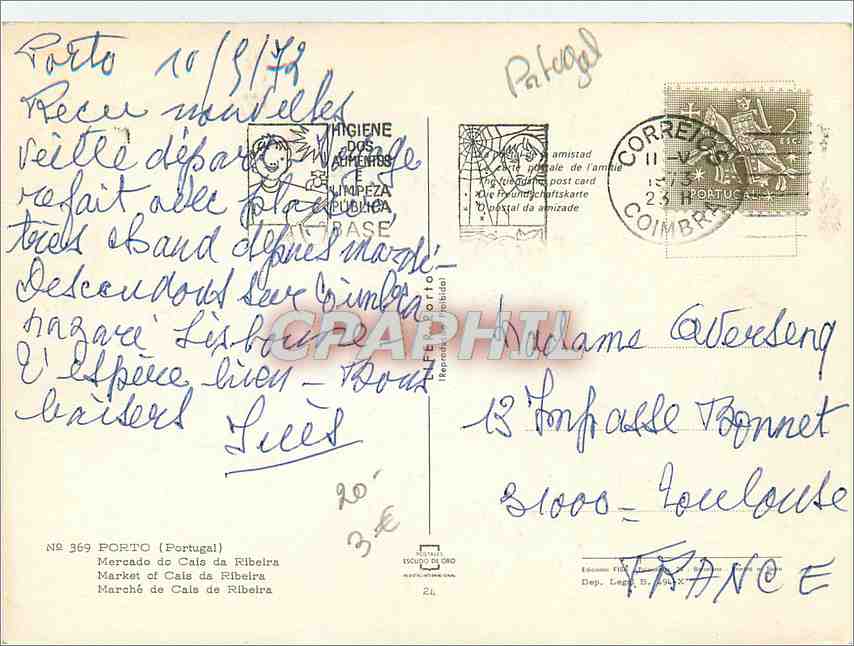 Porto 10/5/72
Recu nouvelles
veille départ
refait avec plaisir
très chaud depuis mardi
Descendons sur Coimbra
nazaré Lisbonne -
T'espère bien - Bons
baisers Inès
Portugal
HIGIENE
DOS
ALIMENTOS
E
LIMPEZA
PÚBLICA
BASE
La postal de la amistad
La carte postale de l'amitié
The friendship post card
Die Freundschaftskarte
O postal da amizade
CORREIOS
11-V
197
23 H
COIMBRA
2
ESC.
PORTUGAL
LIFER Porto
(Reprodução Proibida)
CPARPHIL
Madame Averseng
13 Impasse Bonnet
31000 - Toulouse
FRANCE
20
3 €
Nº 369 PORTO (Portugal)
Mercado do Cais da Ribeira
Market of Cais da Ribeira
Marché de Cais de Ribeira
POSTALES
ESCUDO DE ORO
24
Dep. Legal B. 494-X